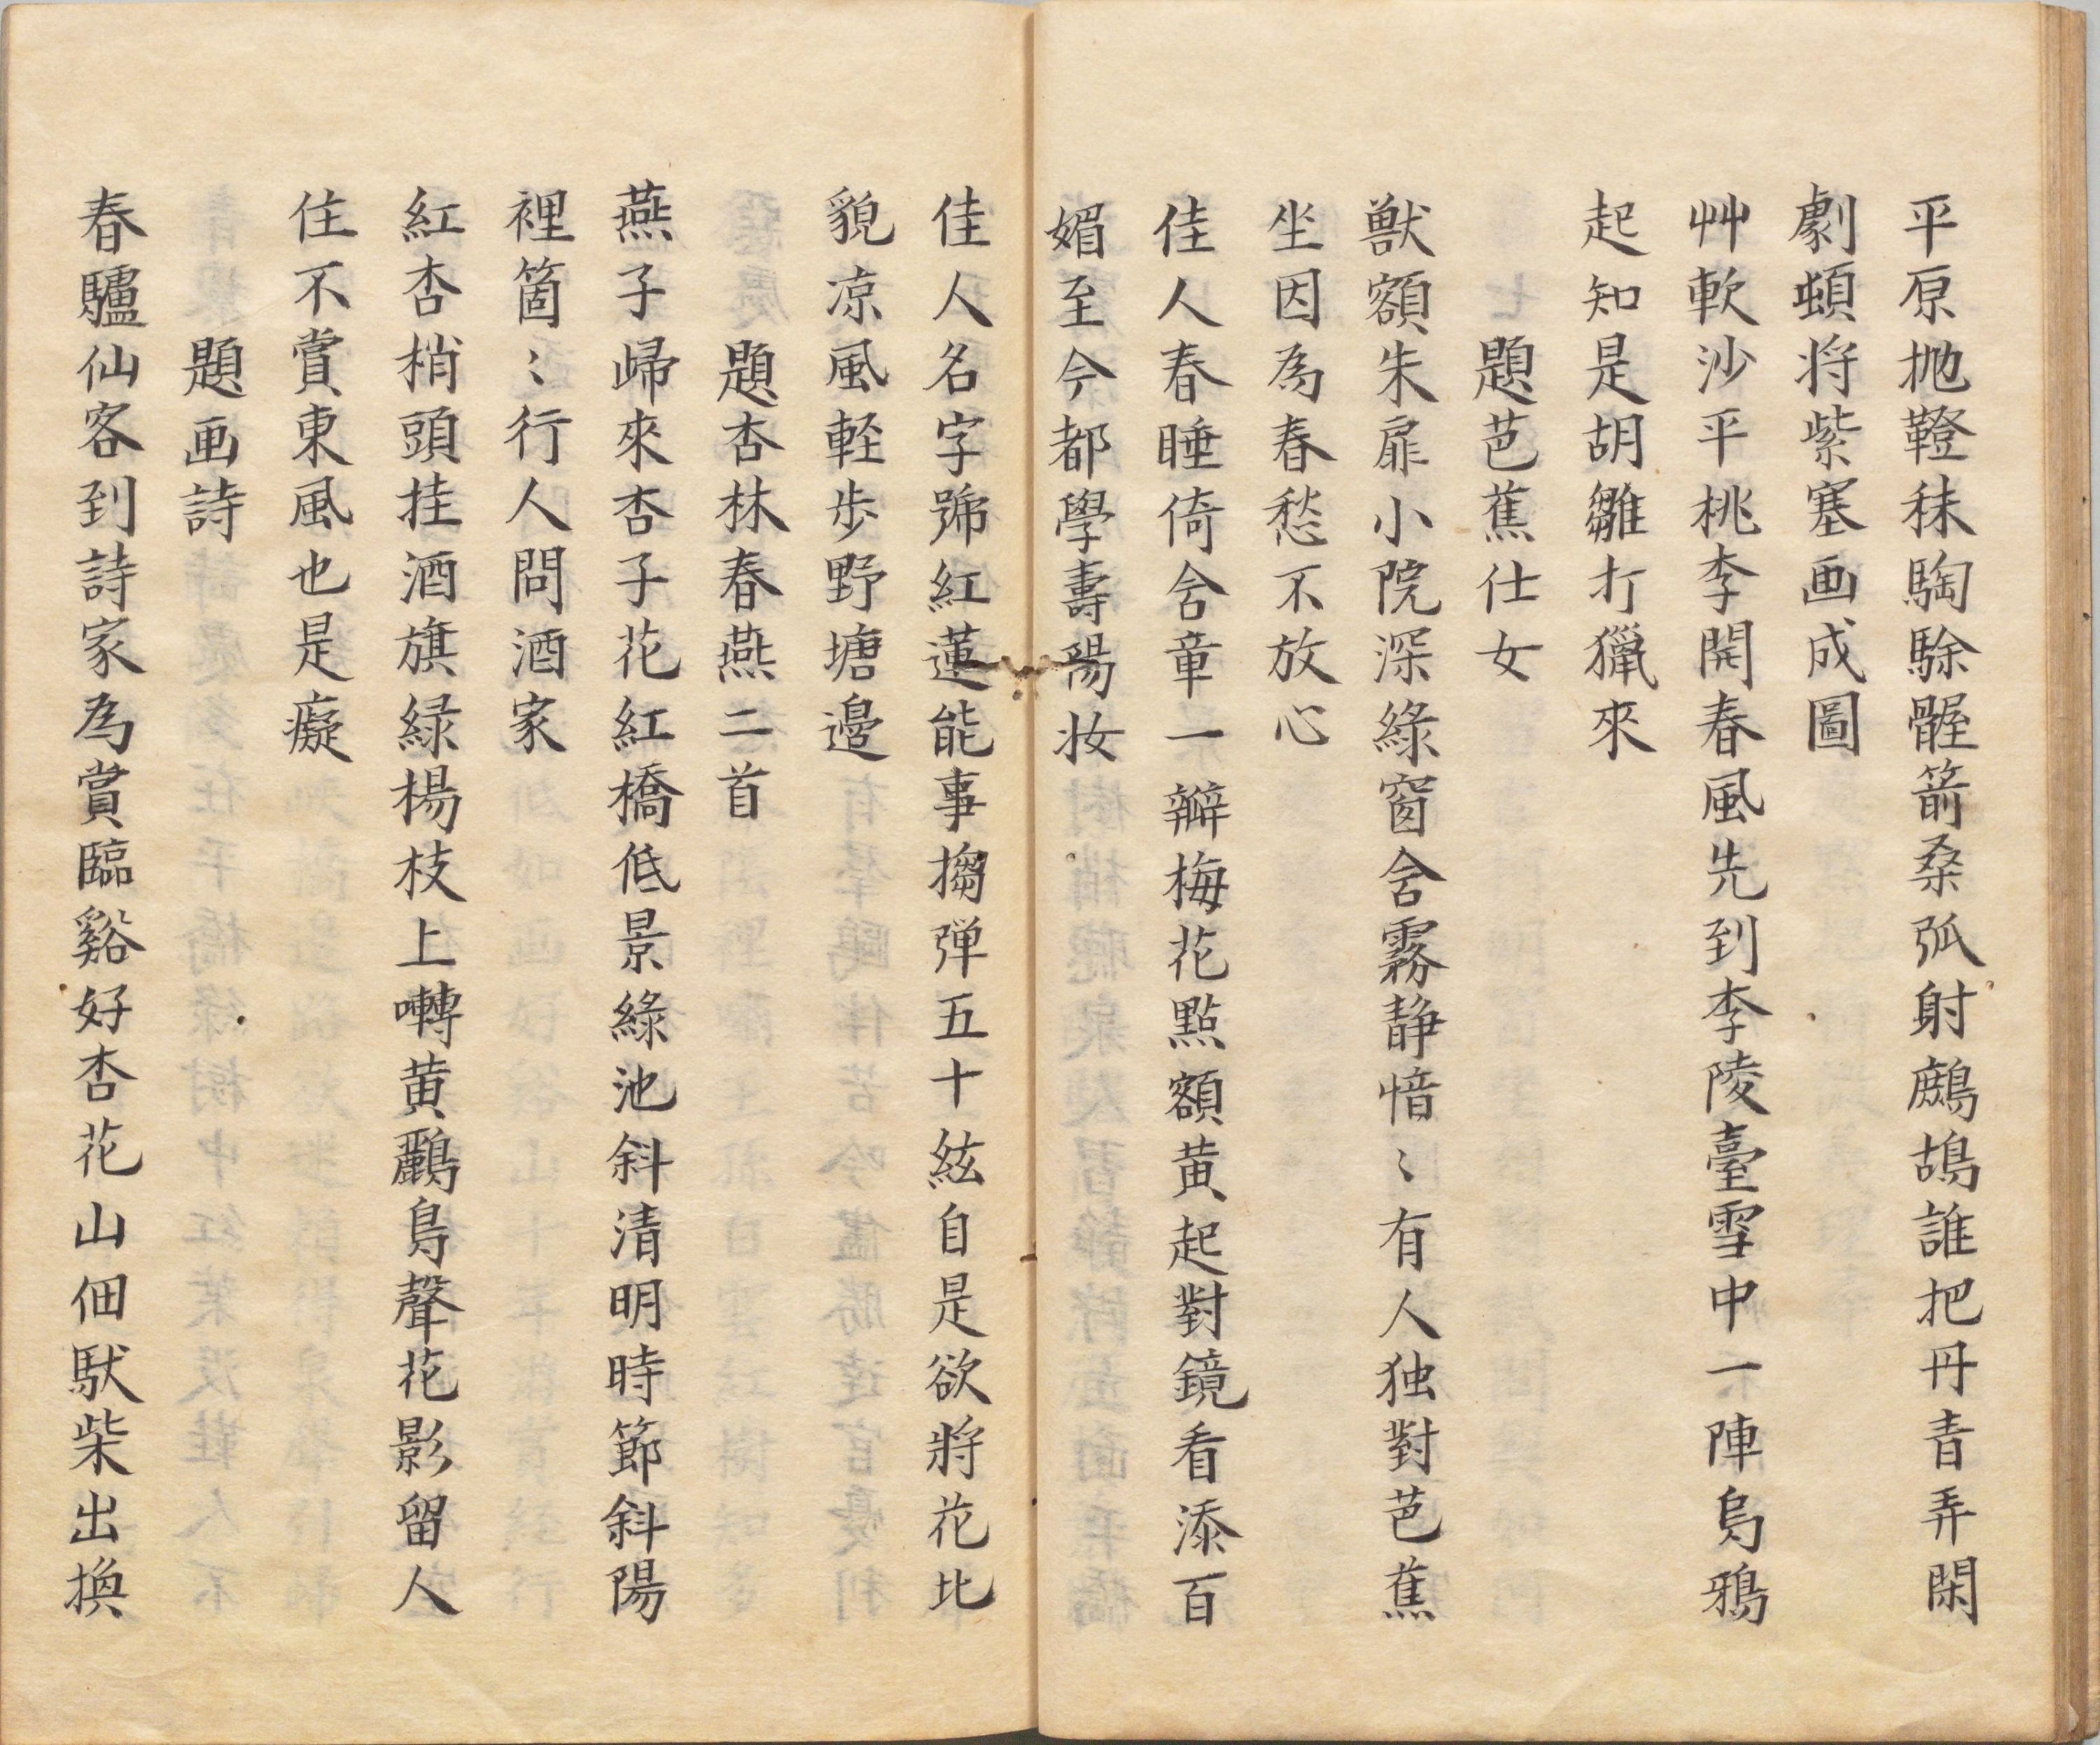 平原抛鞚秣騊駼骽箭桑弧射鷓鴣誰把丹青弄閑
劇頓将紫塞画成圖
艸軟沙平桃李開春風先到李陵臺雪中一陣烏鴉
起知是胡雛打獵來
題芭蕉仕女
獸額朱扉小院深綠窗含霧静愔〻有人独對芭蕉
坐因為春愁不放心
佳人春睡倚含章一瓣梅花點額黄起對鏡看添百
媚至今都學壽陽妆
佳人名字號紅蓮能事搊弹五十絃自是欲將花比
貌凉風軽步野塘邉
題杏林春燕二首
燕子歸來杏子花紅橋低景綠池斜清明時節斜陽
裡箇〻行人問酒家
紅杏梢頭挂酒旗緑楊枝上囀黄鸝鳥聲花影留人
住不賞東風也是癡
題画詩
春驢仙客到詩家為賞臨谿好杏花山佃馱柴出換